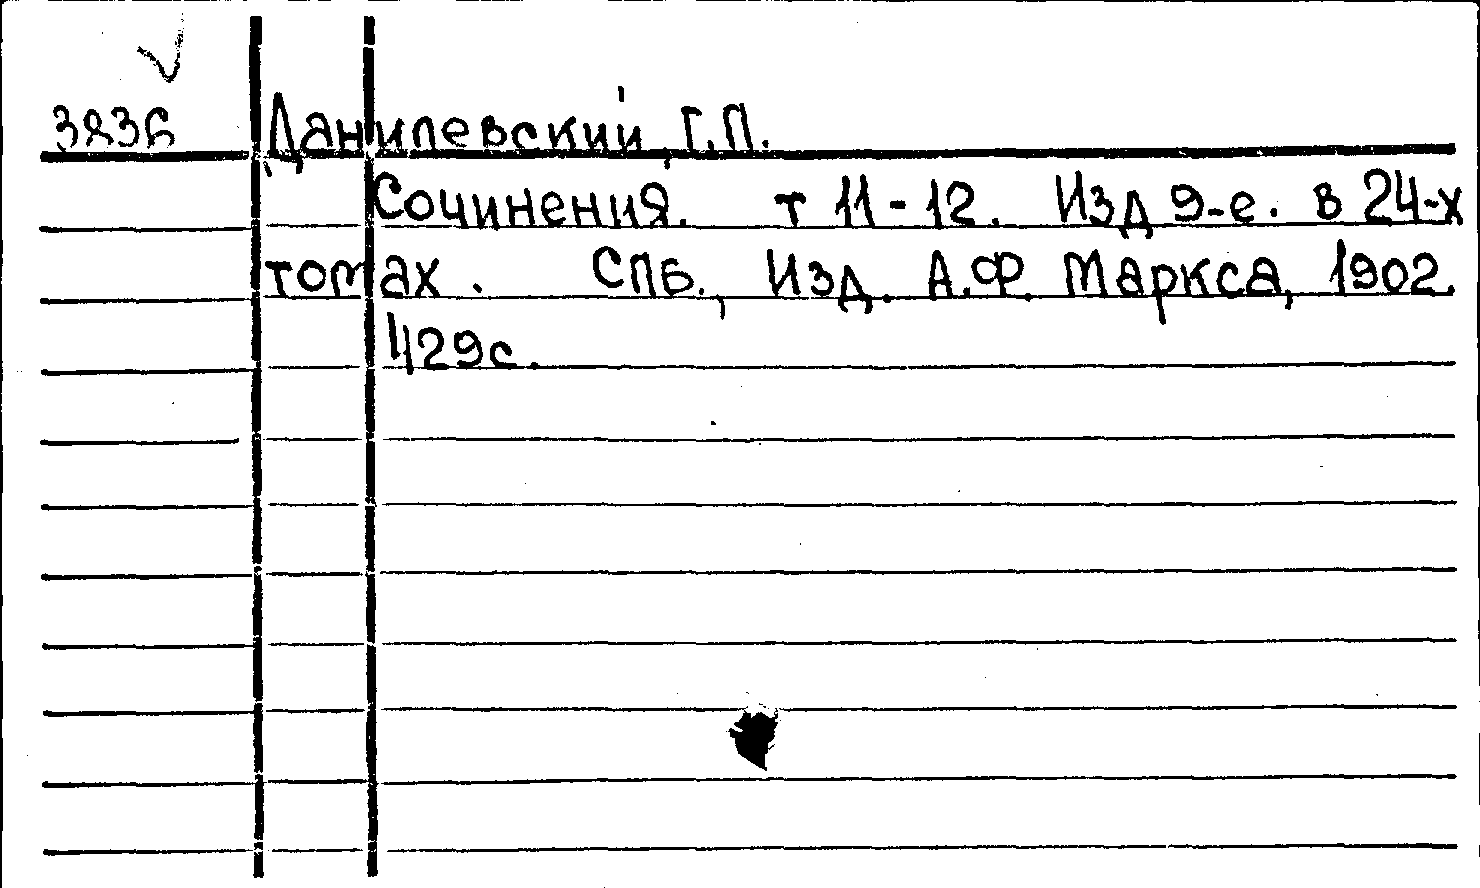 3836 Данилевский, Г.П.
Сочинения. т 11-12. Изд 9-е. в 24-х
томах. СПб., Изд. А.Ф. Маркса, 1902.
429с.